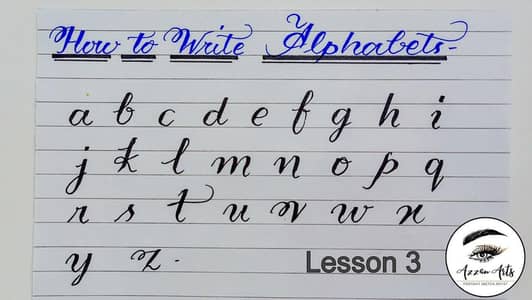 How to Write Alphabets-
a b c d e f g h i
j k l m n o p q
r s t u v w x
y z.
Lesson 3
Azzen Arts